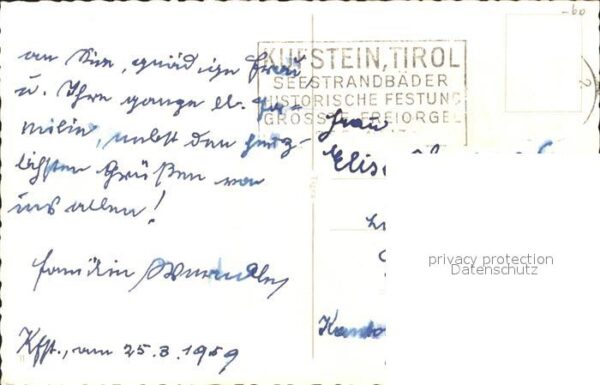 -60
an Sie, gnädige Frau
u. Ihre ganze
milie, nebst den herz-
lichsten Grüßen von
uns allen!
Familie
Kfst., am 25.3.1959
KUFSTEIN, TIROL
SEESTRANDBÄDER
HISTORISCHE FESTUNG
GROSSE FREIORGEL
2
Frau
Elis
Kanto
privacy protection
Datenschutz